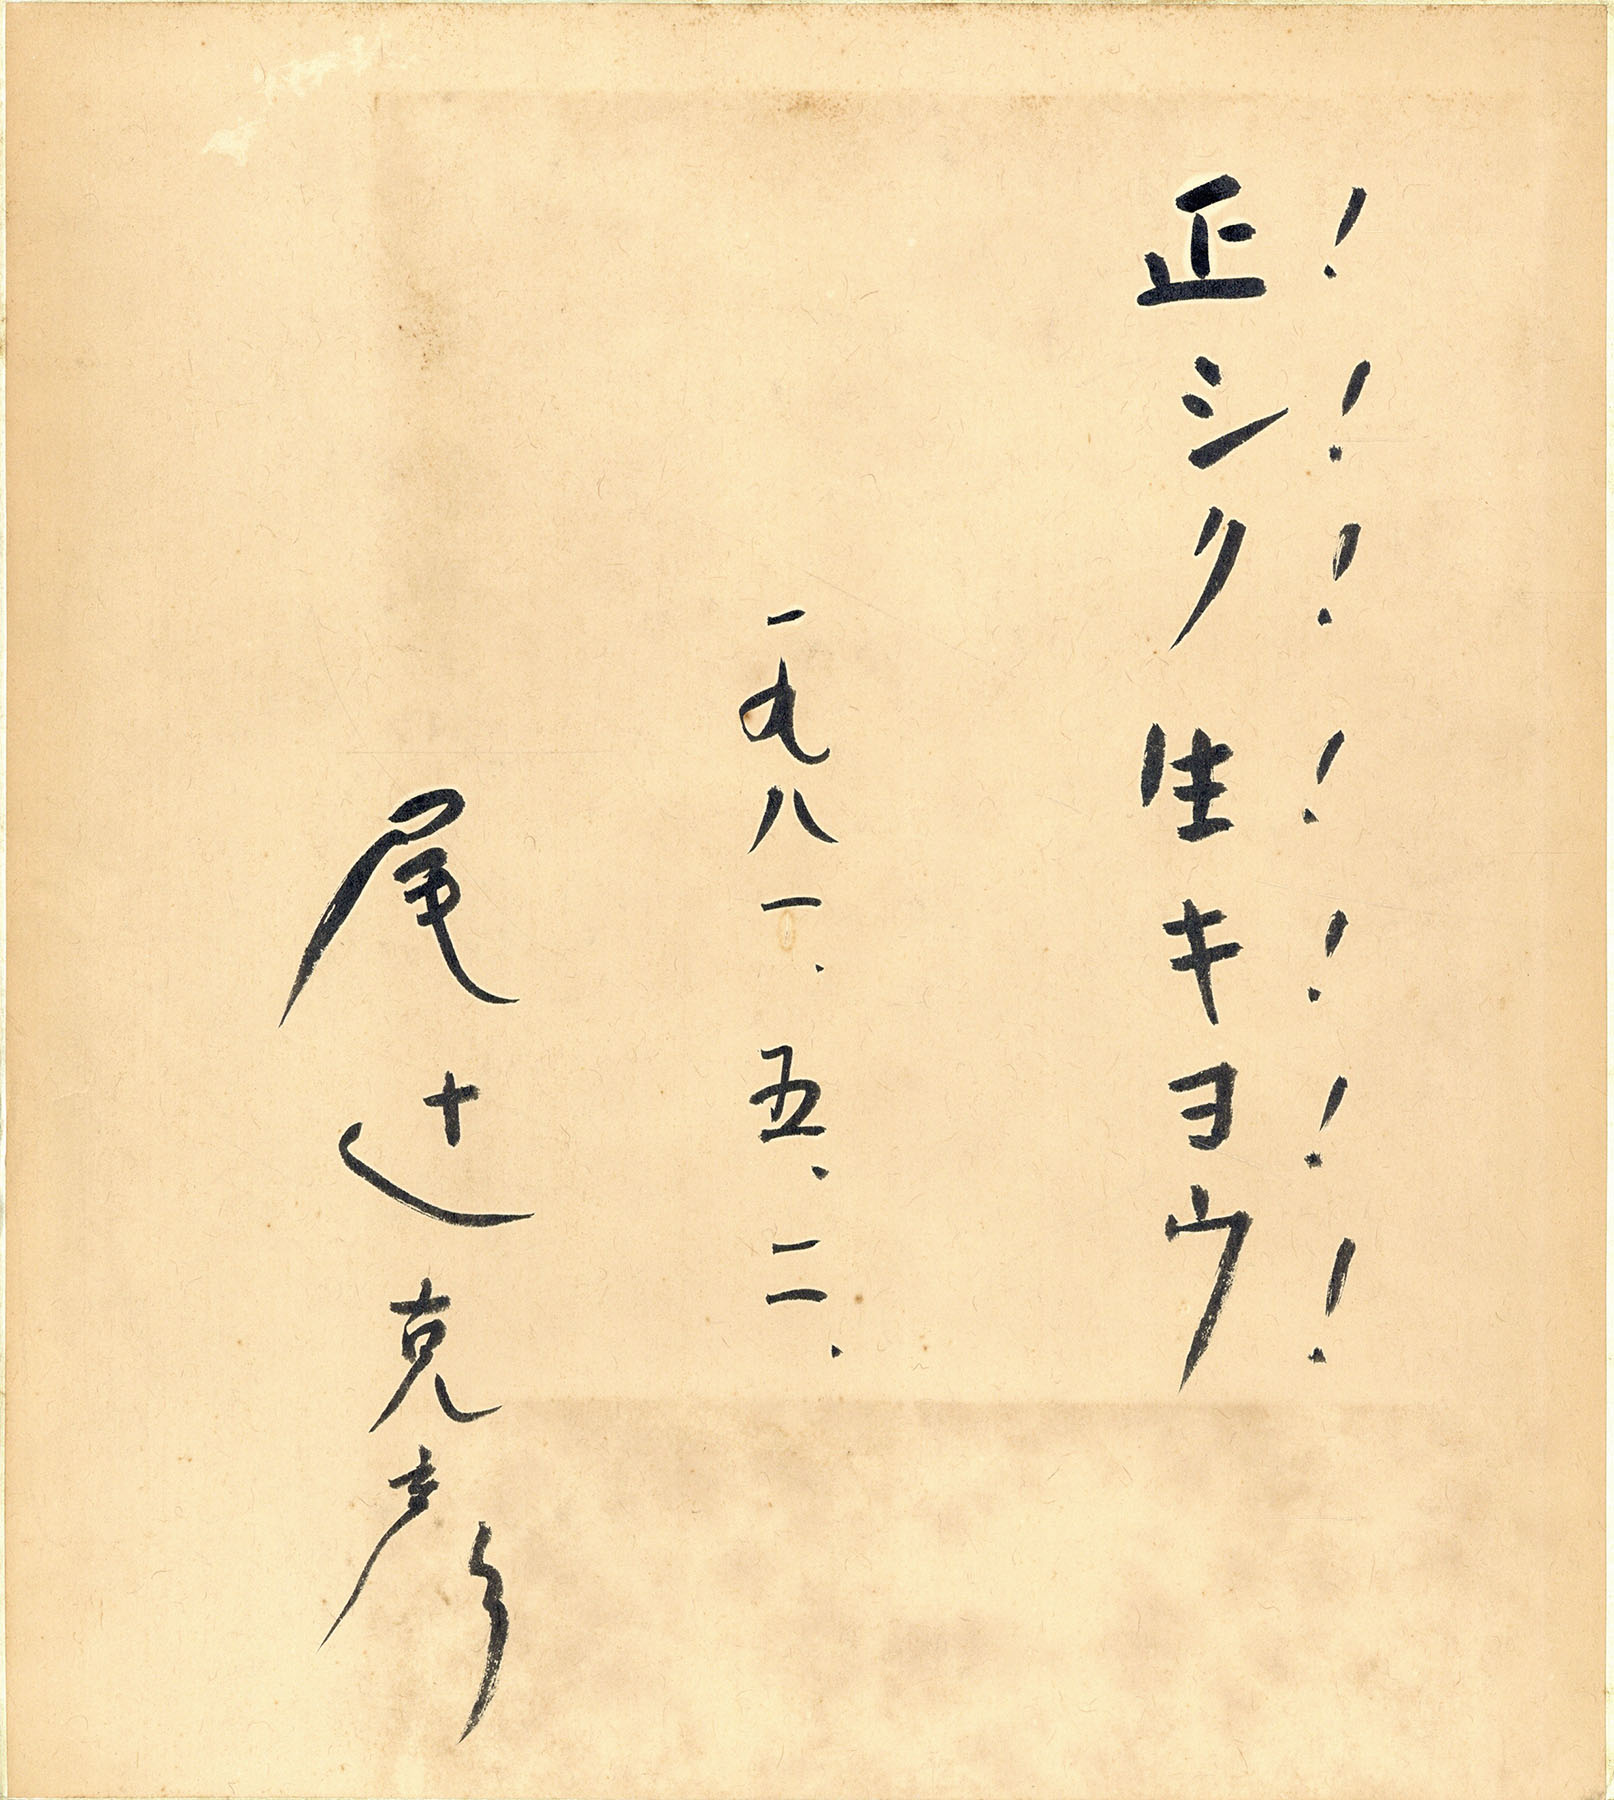 ！！！！！！！
正シク生キヨウ
一九八一．五．二．
尾辻克彦